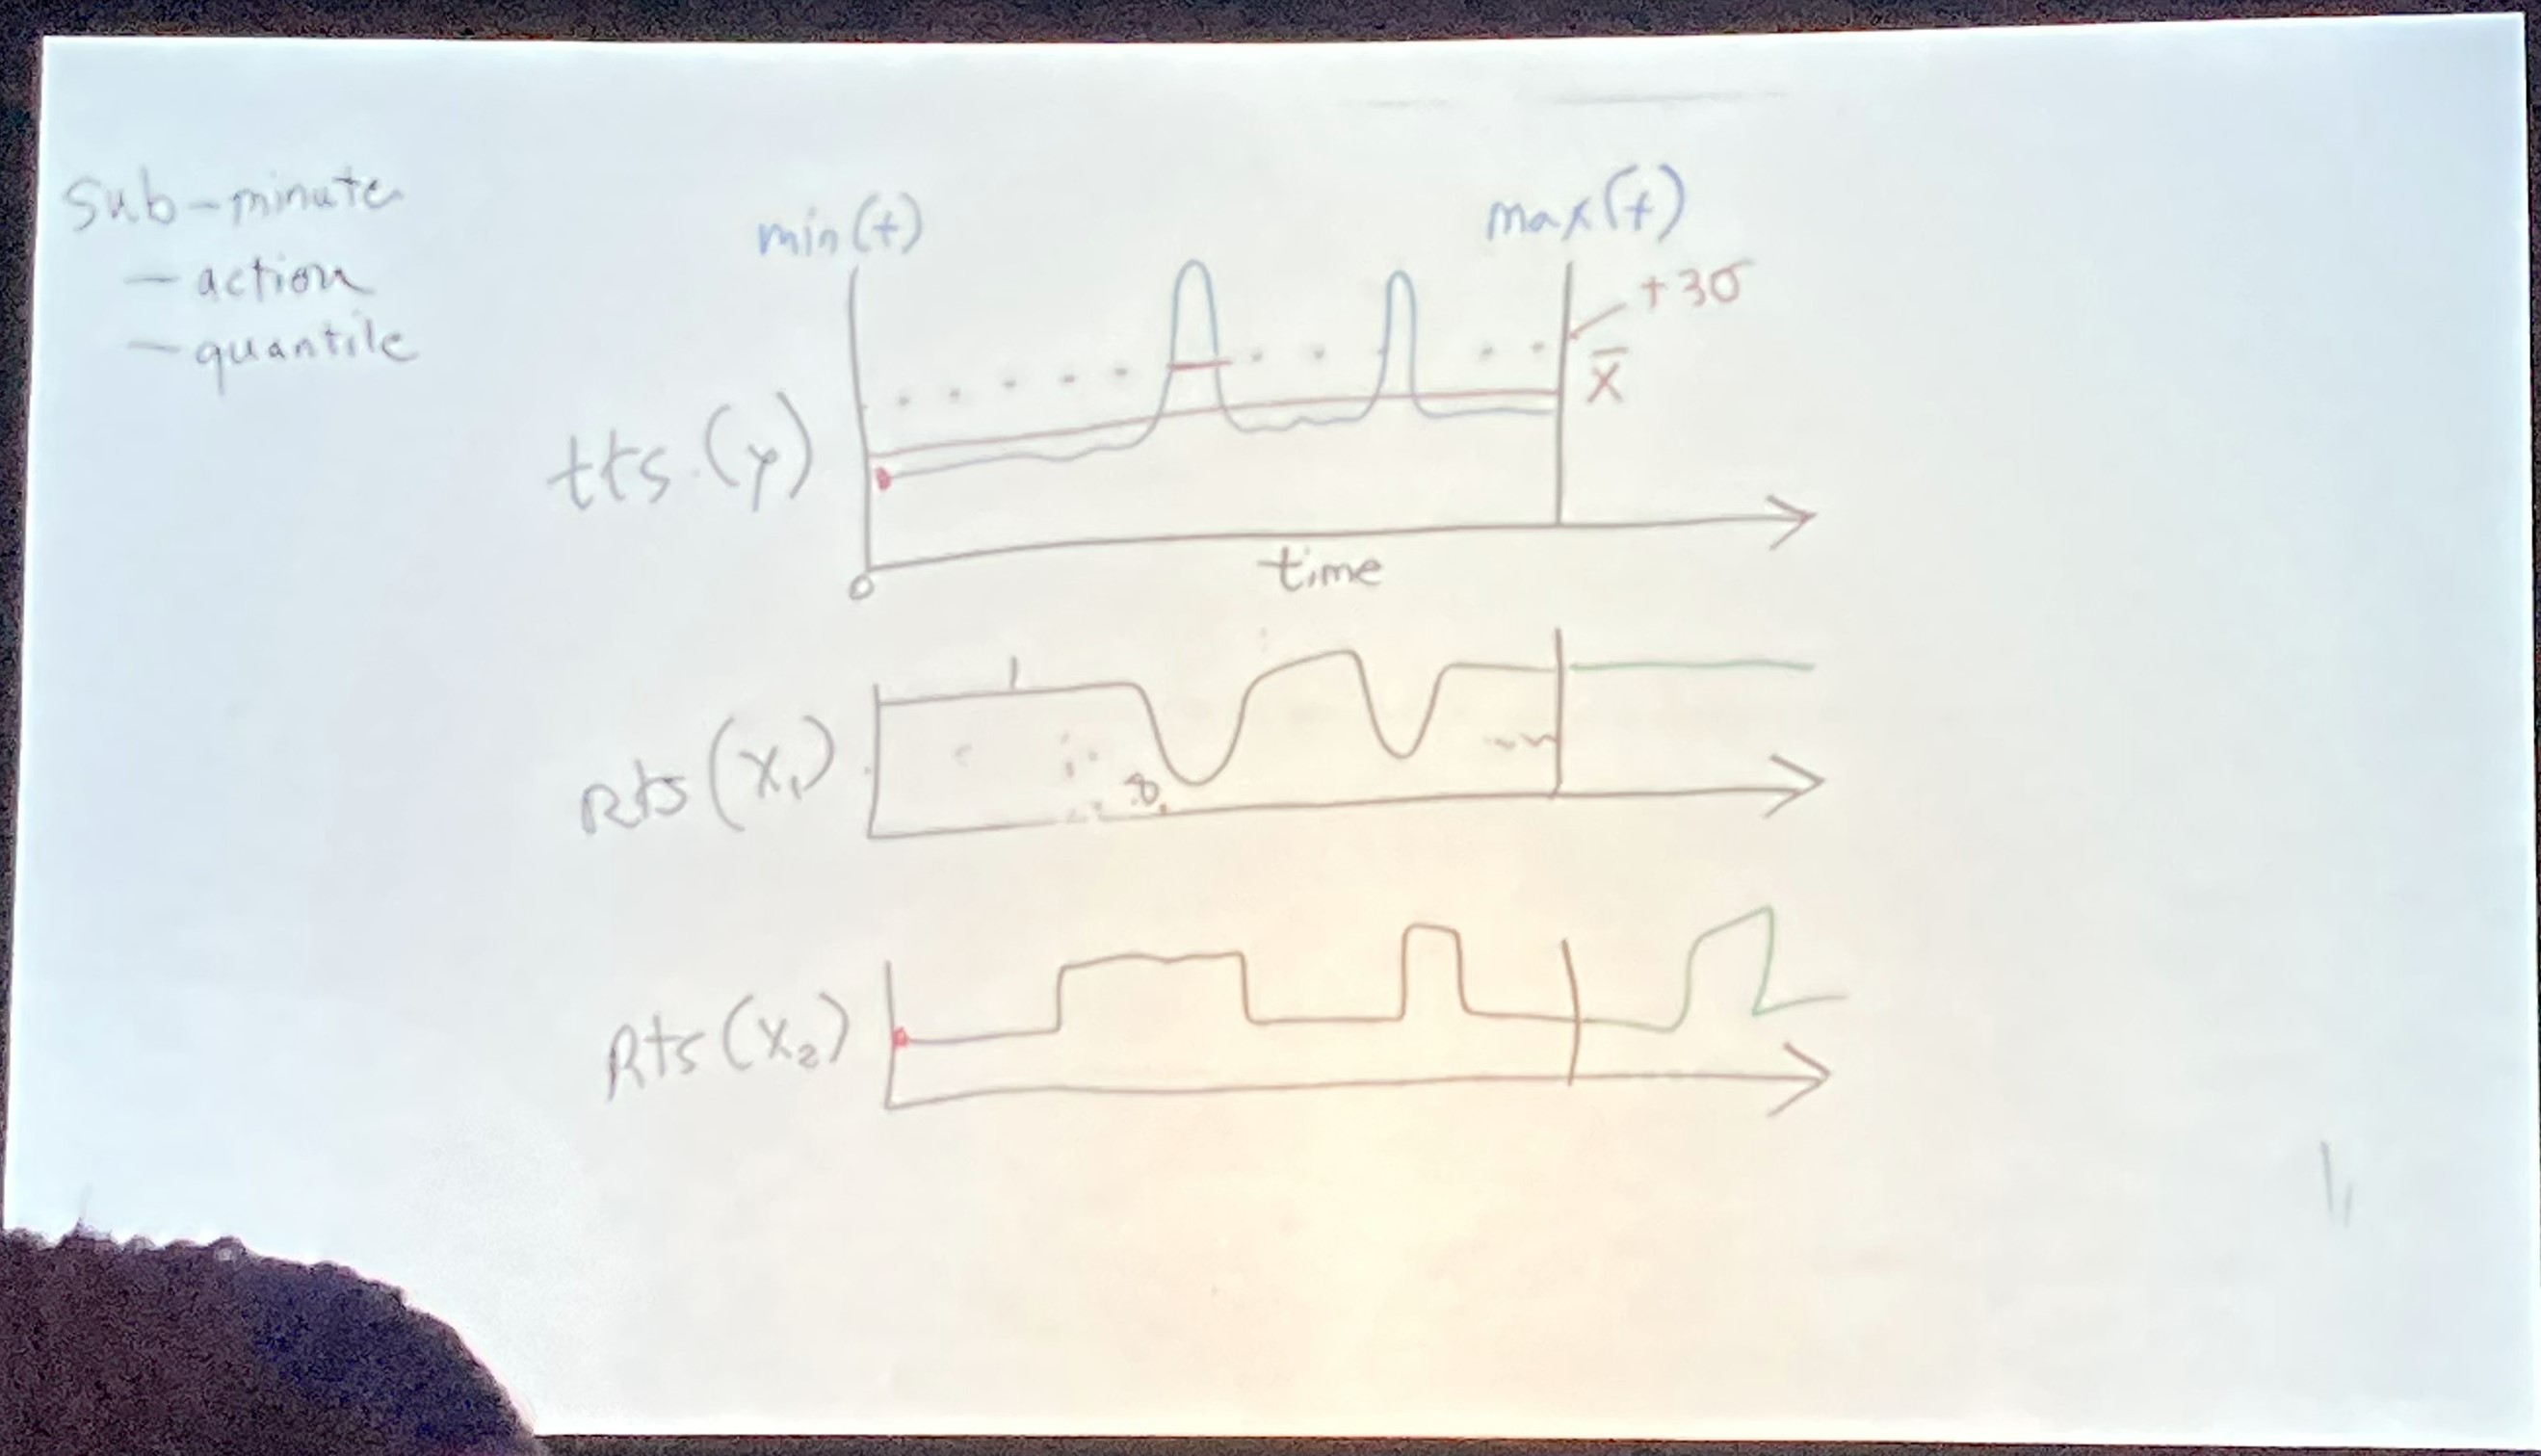 sub-minute
- action
- quantile
min(t)
max(t)
+3σ
x̄
tts.(y)
0
time
Rts(x₁)
Rts(x₂)